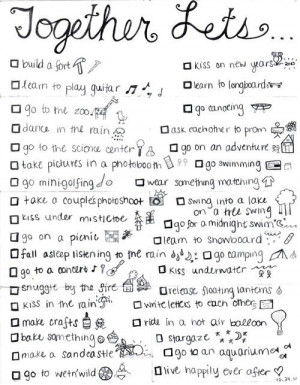 Together Lets...
build a fort
kiss on new years
learn to play guitar
learn to longboard
go to the zoo
go canoeing
dance in the rain
ask eachother to prom
go to the science center
go on an adventure
take pictures in a photobooth
go swimming
go minigolfing
wear something matching
take a couples photoshoot
swing into a lake
on a tree swing
kiss under mistletoe
go for a midnight swim
go on a picnic
learn to snowboard
fall asleep listening to the rain
go camping
go to a concert
kiss underwater
snuggle by the fire
release floating lanterns
kiss in the rain
write letters to each other
make crafts
ride in a hot air balloon
bake something
stargaze
make a sandcastle
go to an aquarium
go to wet'n'wild
live happily ever after